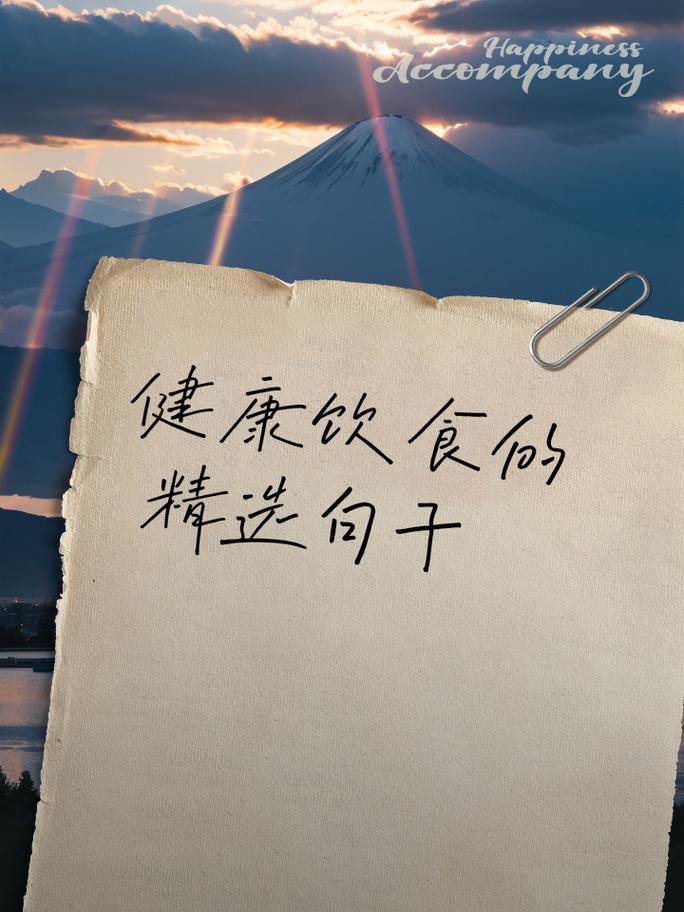 Happiness
Accompany
健康饮食的
精选句子